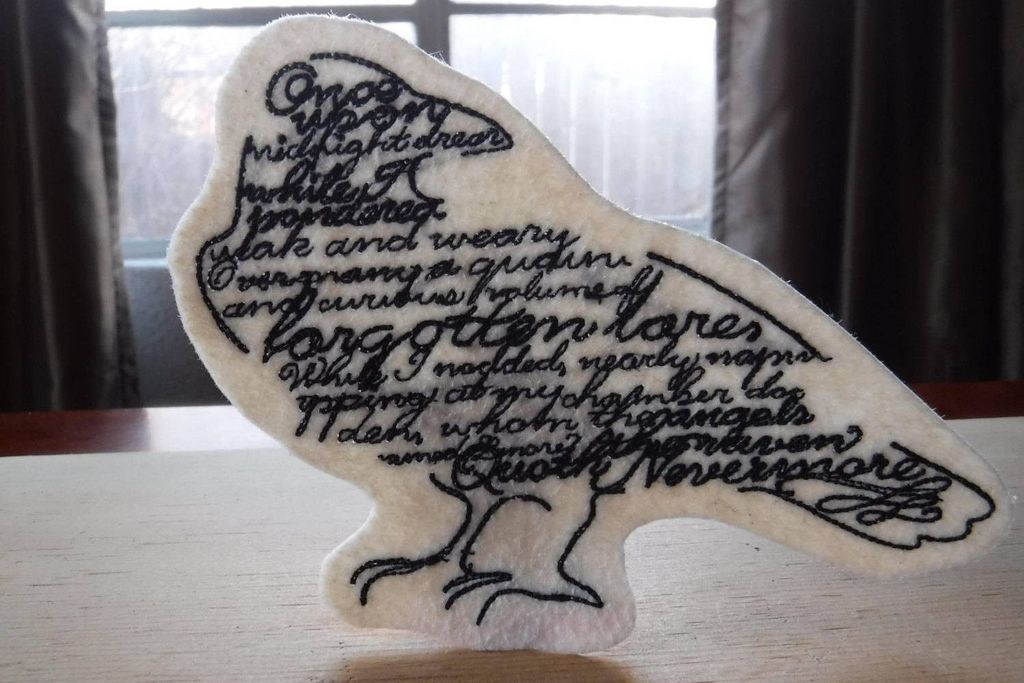 Once
upon
midnight drear
while I
pondered
weak and weary
Over many a quaint
and curious volume of
forgotten lores
While I nodded, nearly napin
apping at my chamber doo
den, whom the angels
named Lenore? the raven
Quoth Nevermore